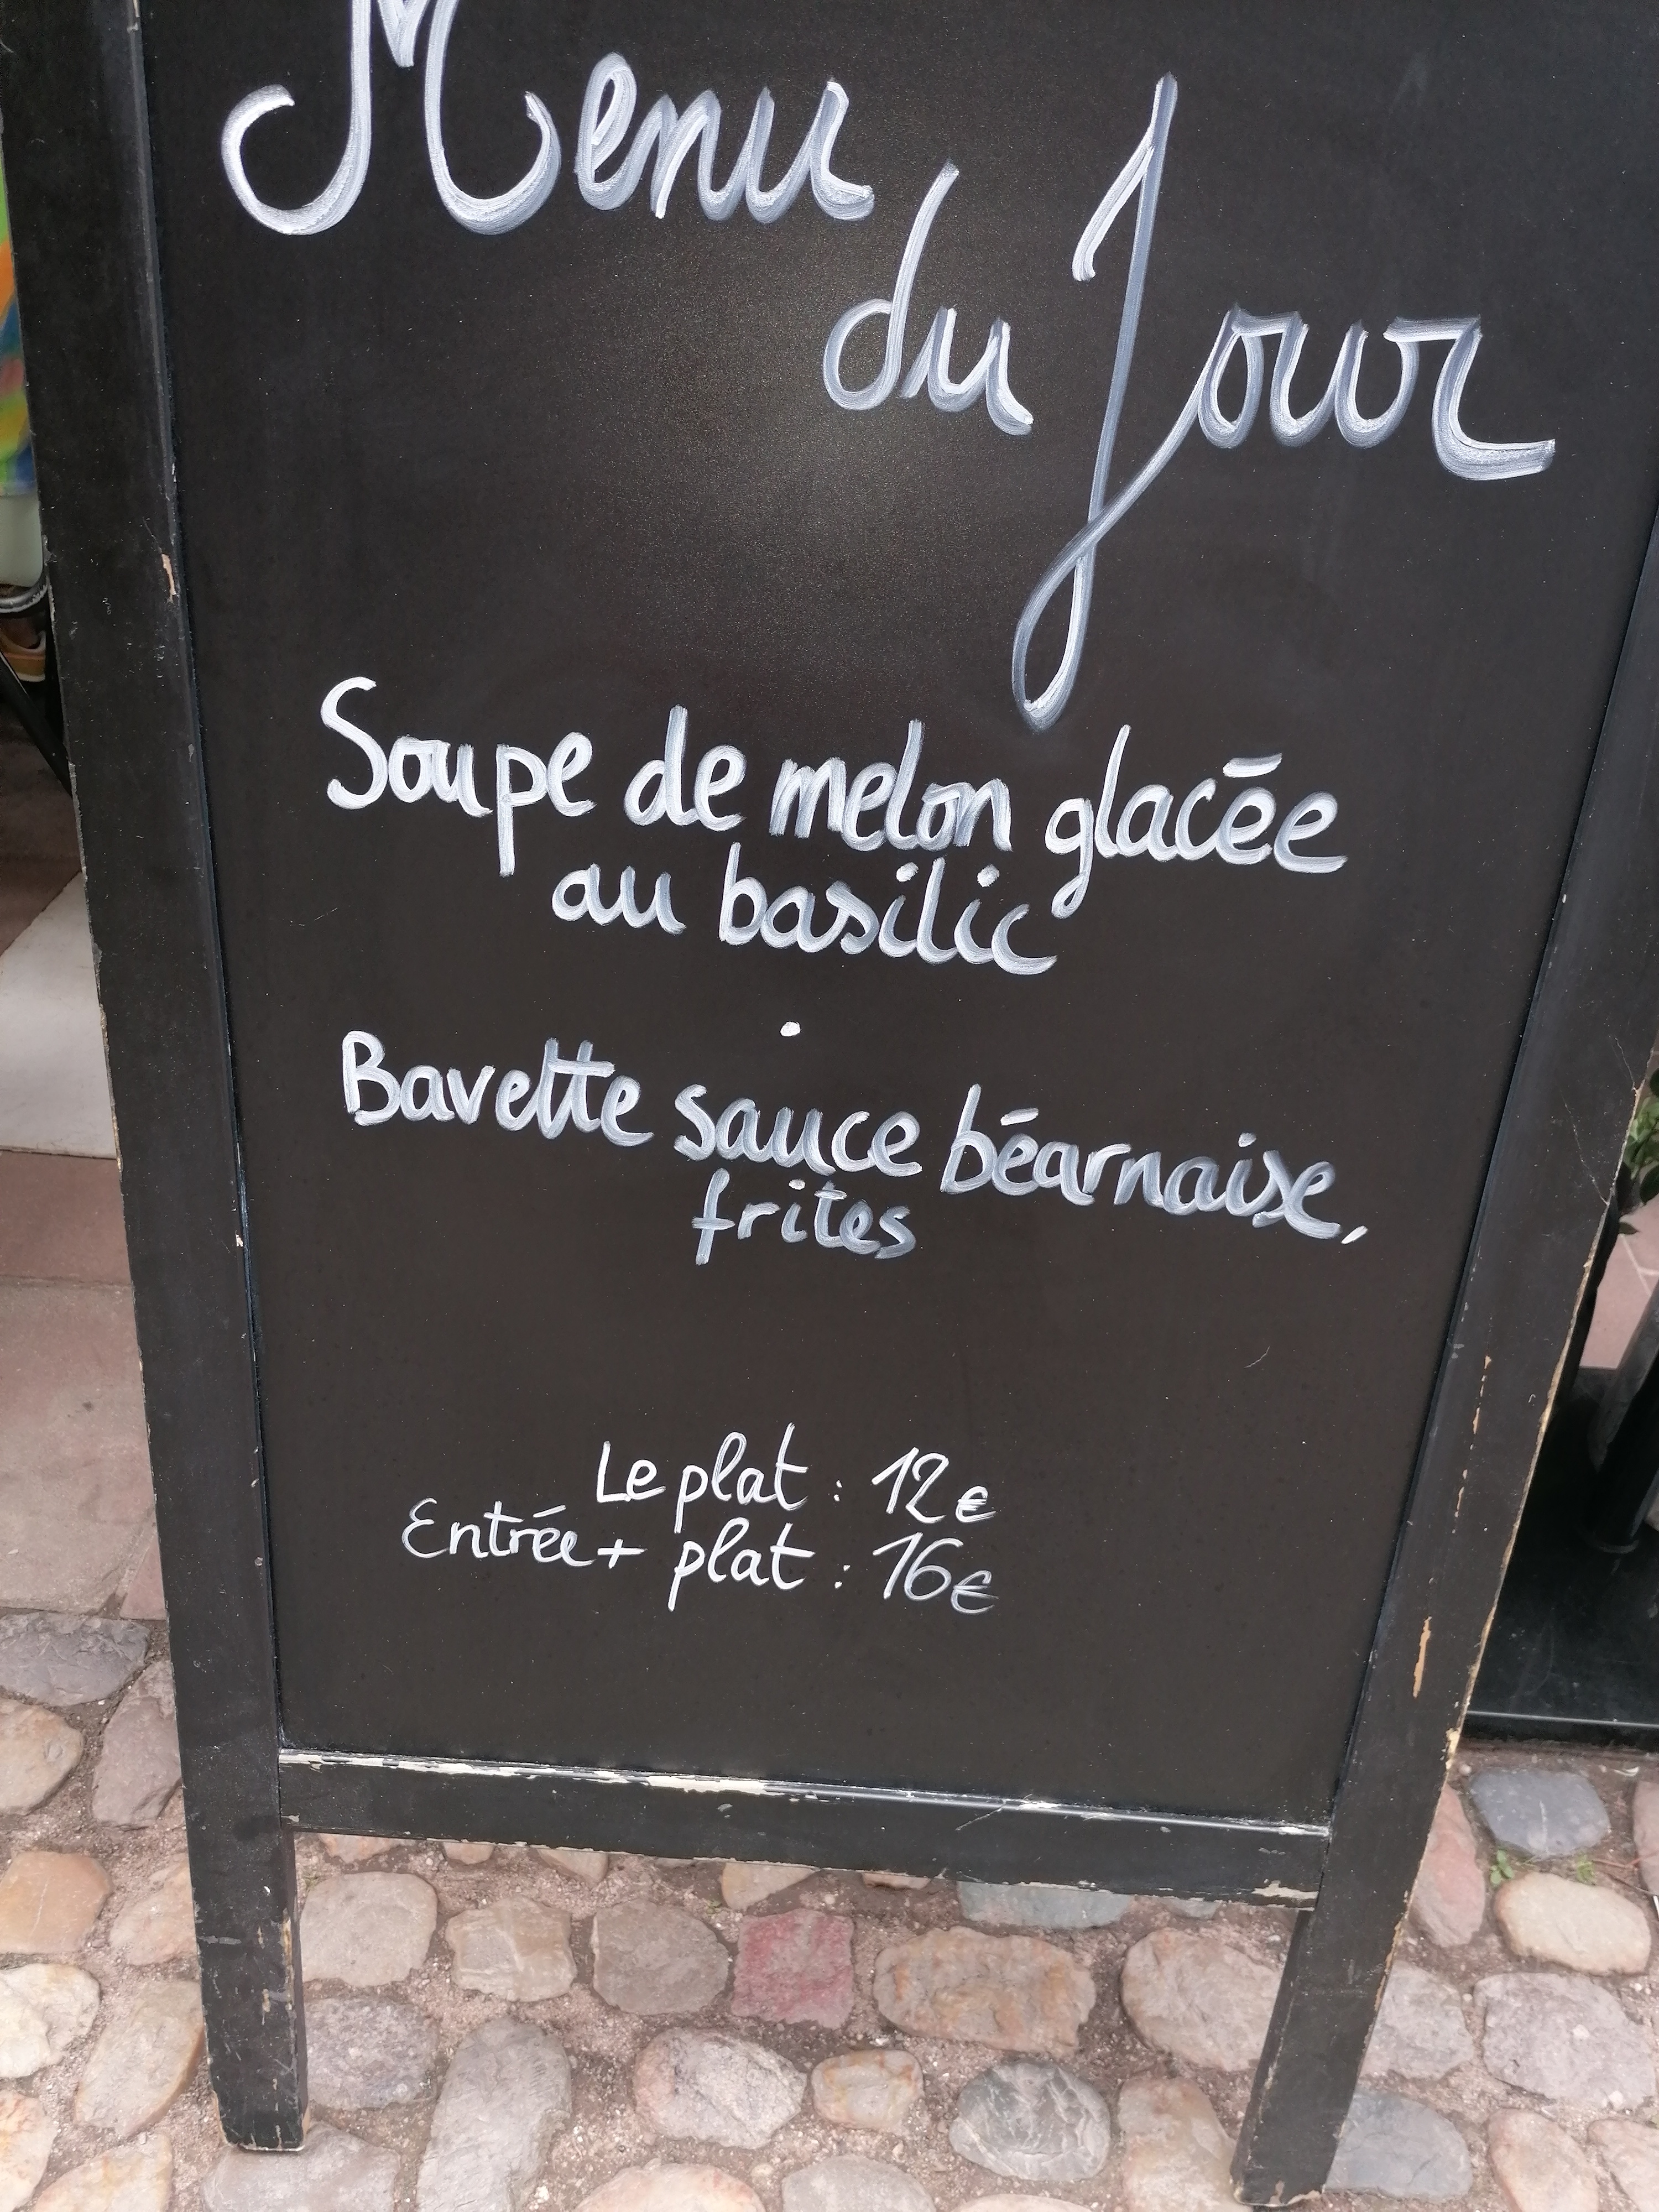 Menu
du Jour
Soupe de melon glacée
au basilic
.
Bavette sauce béarnaise,
frites
Le plat : 12€
Entrée + plat : 16€